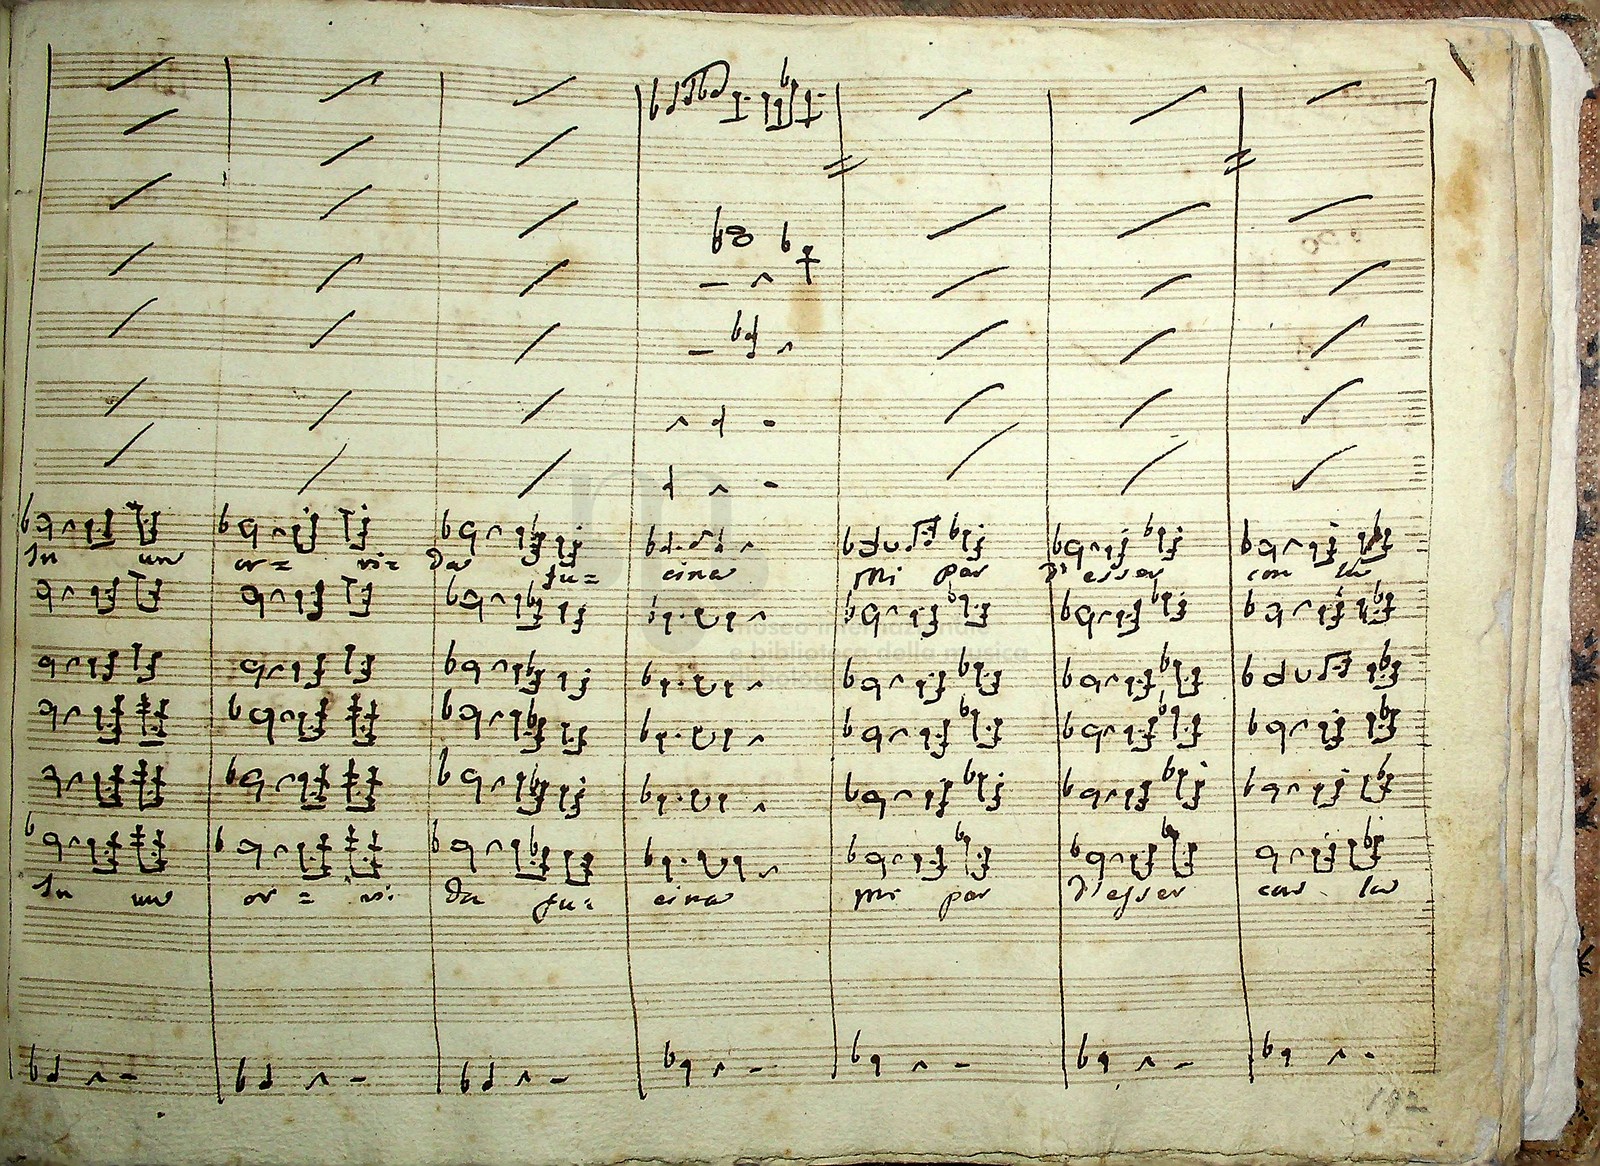 In un or= ri= da fu= cina mi par d'esser con la
museo internazionale
e biblioteca della musica
In un or= ri da fu= cina mi par d'esser con la
192